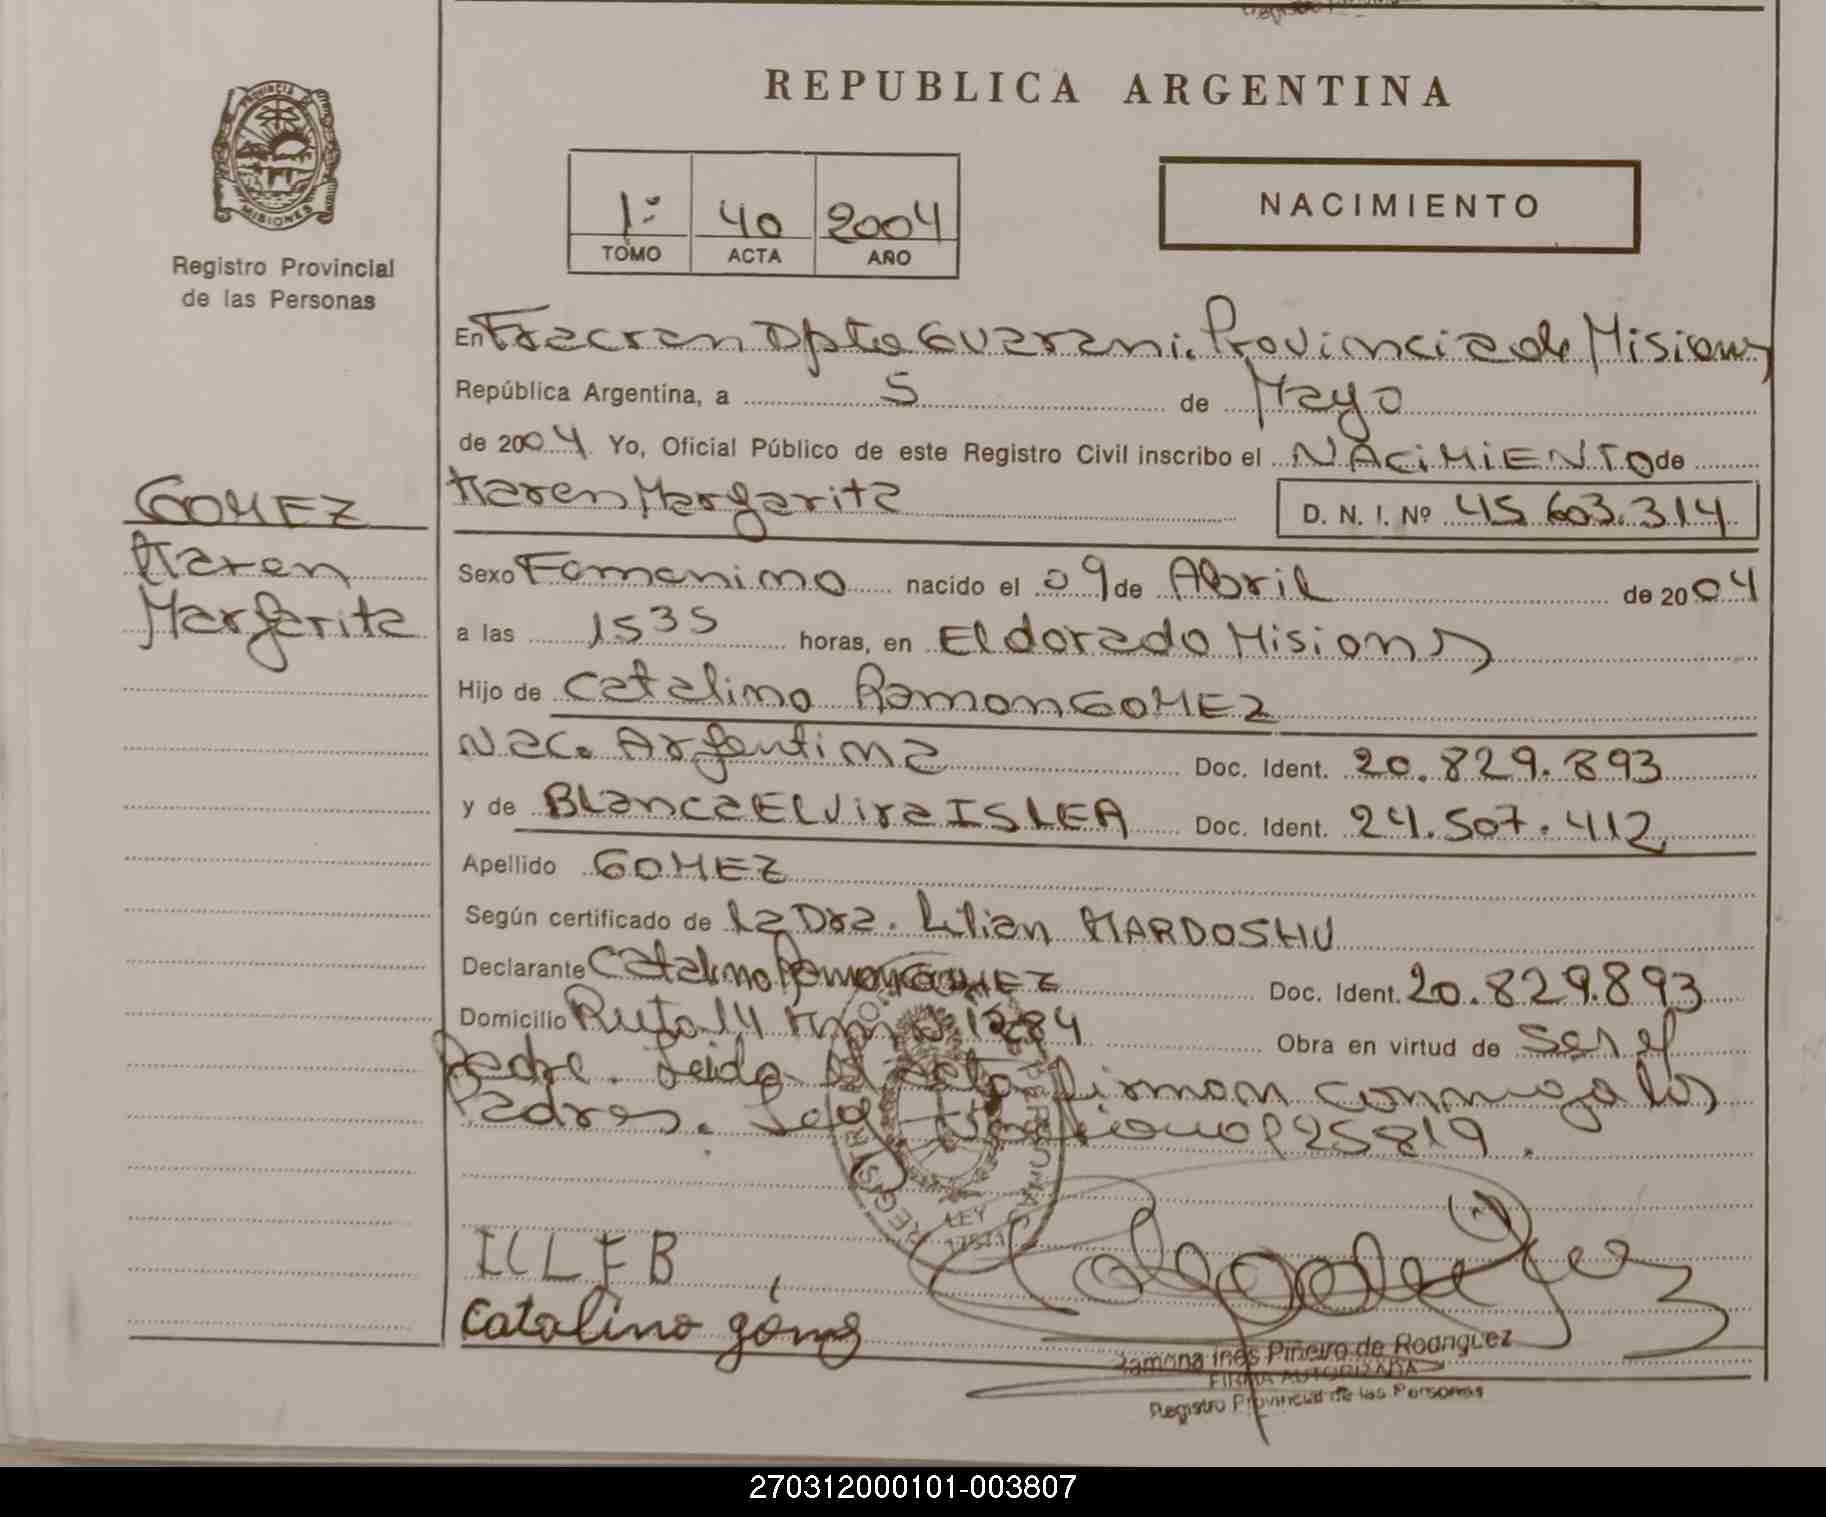 REPUBLICA ARGENTINA
PROVINCIA DE
MISIONES
Registro Provincial
de las Personas
1º 40 2004
TOMO ACTA AÑO
NACIMIENTO
En Fracran Dpto Guarani. Provincia de Misiones
República Argentina, a 5 de Mayo
de 2004 Yo, Oficial Público de este Registro Civil inscribo el NACIMIENTO de
Karen Margarita D. N. I. Nº 45.603.314
GOMEZ
Karen
Margarita
Sexo Femenino nacido el 09 de Abril de 2004
a las 1535 horas, en Eldorado Misiones
Hijo de Catalino Ramon GOMEZ
Nac. Argentina Doc. Ident. 20.829.893
y de Blanca Elvira ISLEA Doc. Ident. 24.507.412
Apellido GOMEZ
Según certificado de La Dra. Lilian KARDOSHU
Declarante Catalino Ramon GOMEZ Doc. Ident. 20.829.893
Domicilio Ruta 14 Km 1284 Obra en virtud de ser el
Padre. Leida el acta firman conmigo los
Padres. 25819.
REGISTRO
LEY
ICLFB
Catalino gómez
Ramona Inés Piñeiro de Rodriguez
FIRMA AUTORIZADA
Registro Provincial de las Personas
270312000101-003807